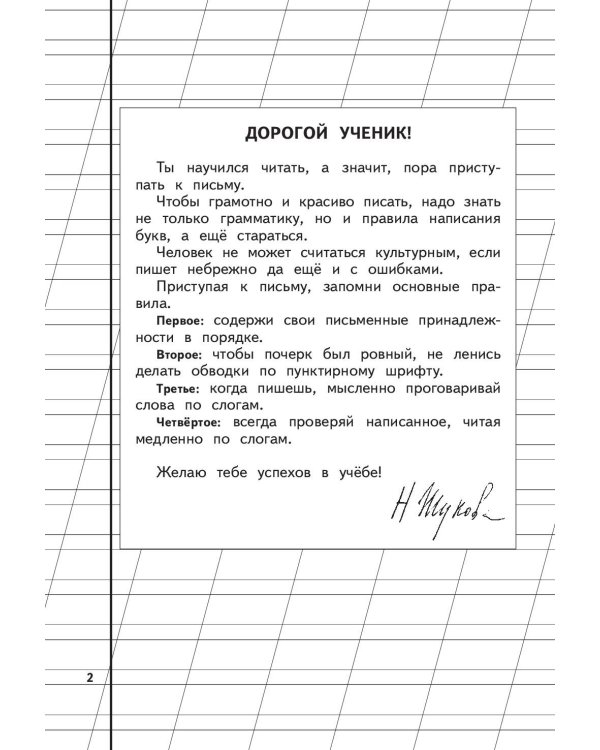 ДОРОГОЙ УЧЕНИК!
Ты научился читать, а значит, пора присту-
пать к письму.
Чтобы грамотно и красиво писать, надо знать
не только грамматику, но и правила написания
букв, а ещё стараться.
Человек не может считаться культурным, если
пишет небрежно да ещё и с ошибками.
Приступая к письму, запомни основные пра-
вила.
Первое: содержи свои письменные принадлеж-
ности в порядке.
Второе: чтобы почерк был ровный, не ленись
делать обводки по пунктирному шрифту.
Третье: когда пишешь, мысленно проговаривай
слова по слогам.
Четвёртое: всегда проверяй написанное, читая
медленно по слогам.
Желаю тебе успехов в учёбе!
Н Жукова
2